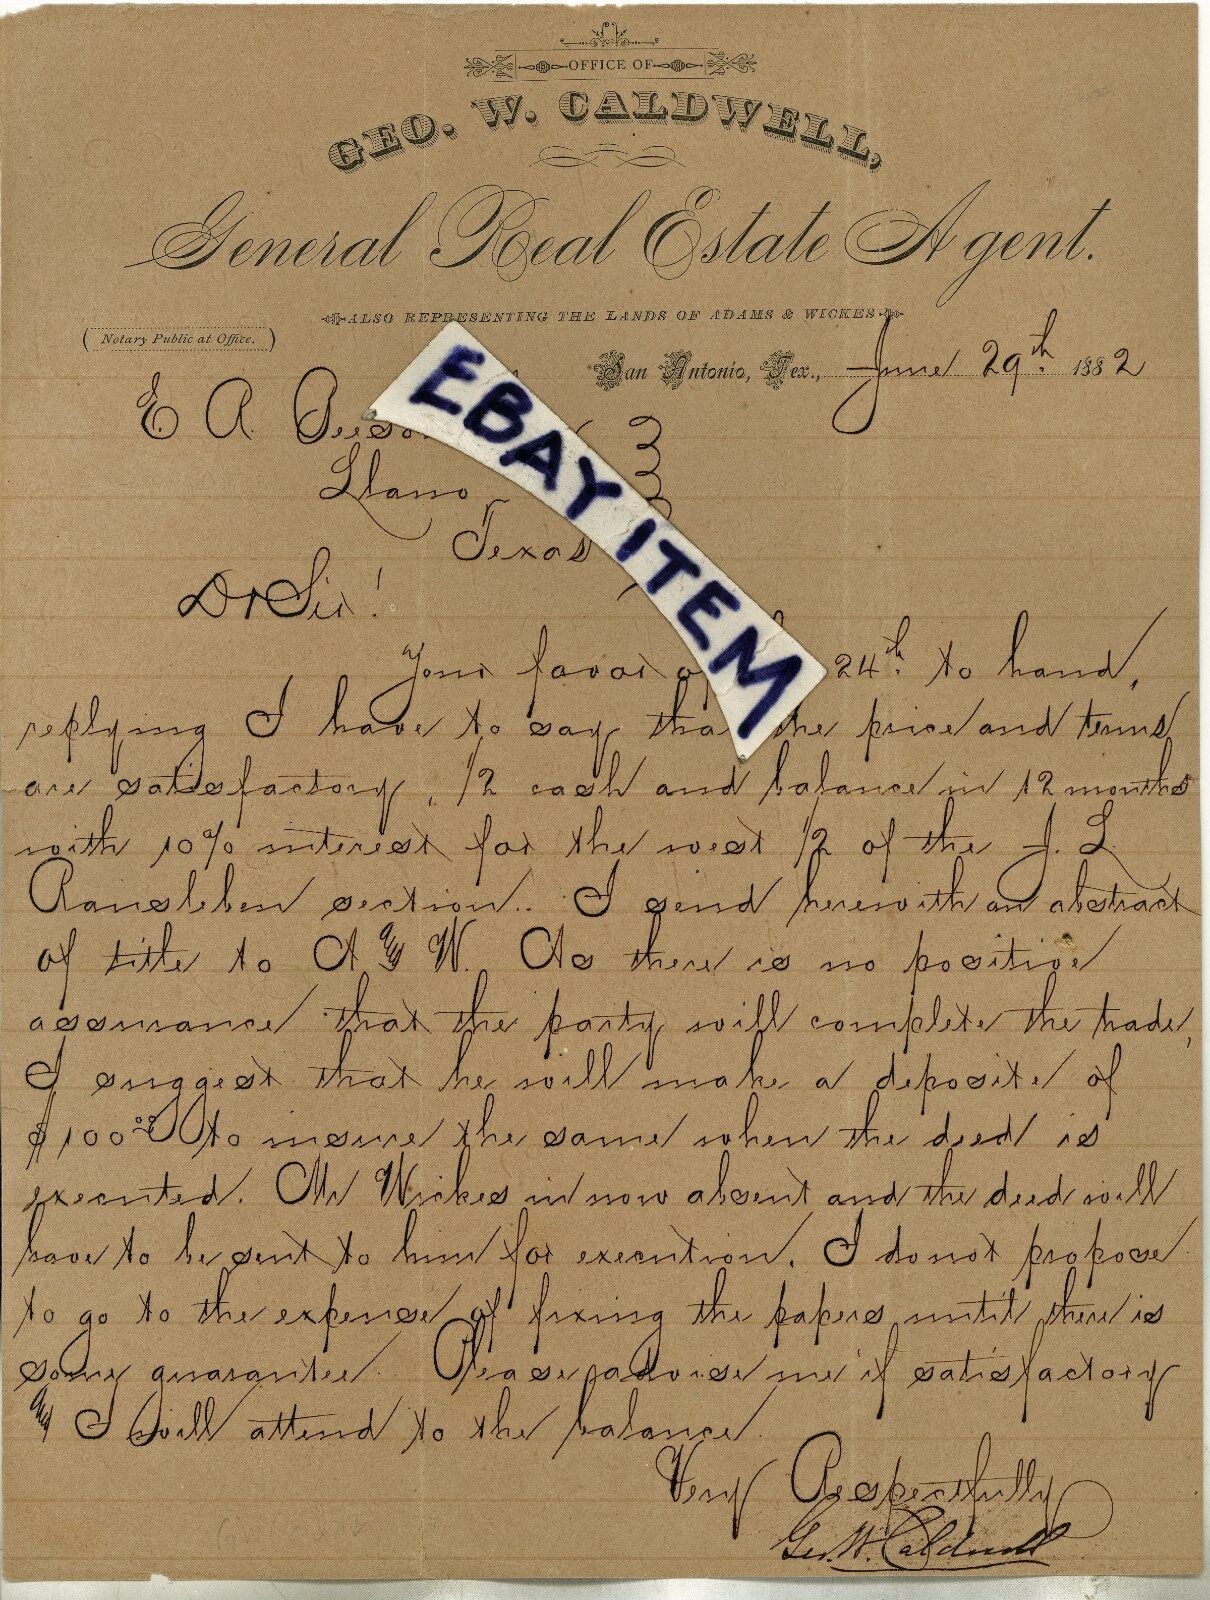 OFFICE OF
GEO. W. CALDWELL,
General Real Estate Agent.
ALSO REPRESENTING THE LANDS OF ADAMS & WICKES
(Notary Public at Office.)
San Antonio, Tex., June 29th 1882
E. A.
Llano
Texas
EBAY ITEM
Dr Sir!
Your favor 24th to hand,
replying I have to say the price and terms
are satisfactory, 1/2 cash and balance in 12 months
with 10% interest for the west 1/2 of the J. L.
Ransleben section. I send herewith an abstract
of title to A & W. As there is no positive
assurance that the party will complete the trade,
I suggest that he will make a deposite of
$100 00 to insure the same when the deed is
executed. Mr Wickes in now absent and the deed will
have to be sent to him for execution. I do not propose
to go to the expense of fixing the papers until there is
some guarantee. Please advise me if satisfactory
& I will attend to the balance.
Very Respectfully
Geo. W. Caldwell